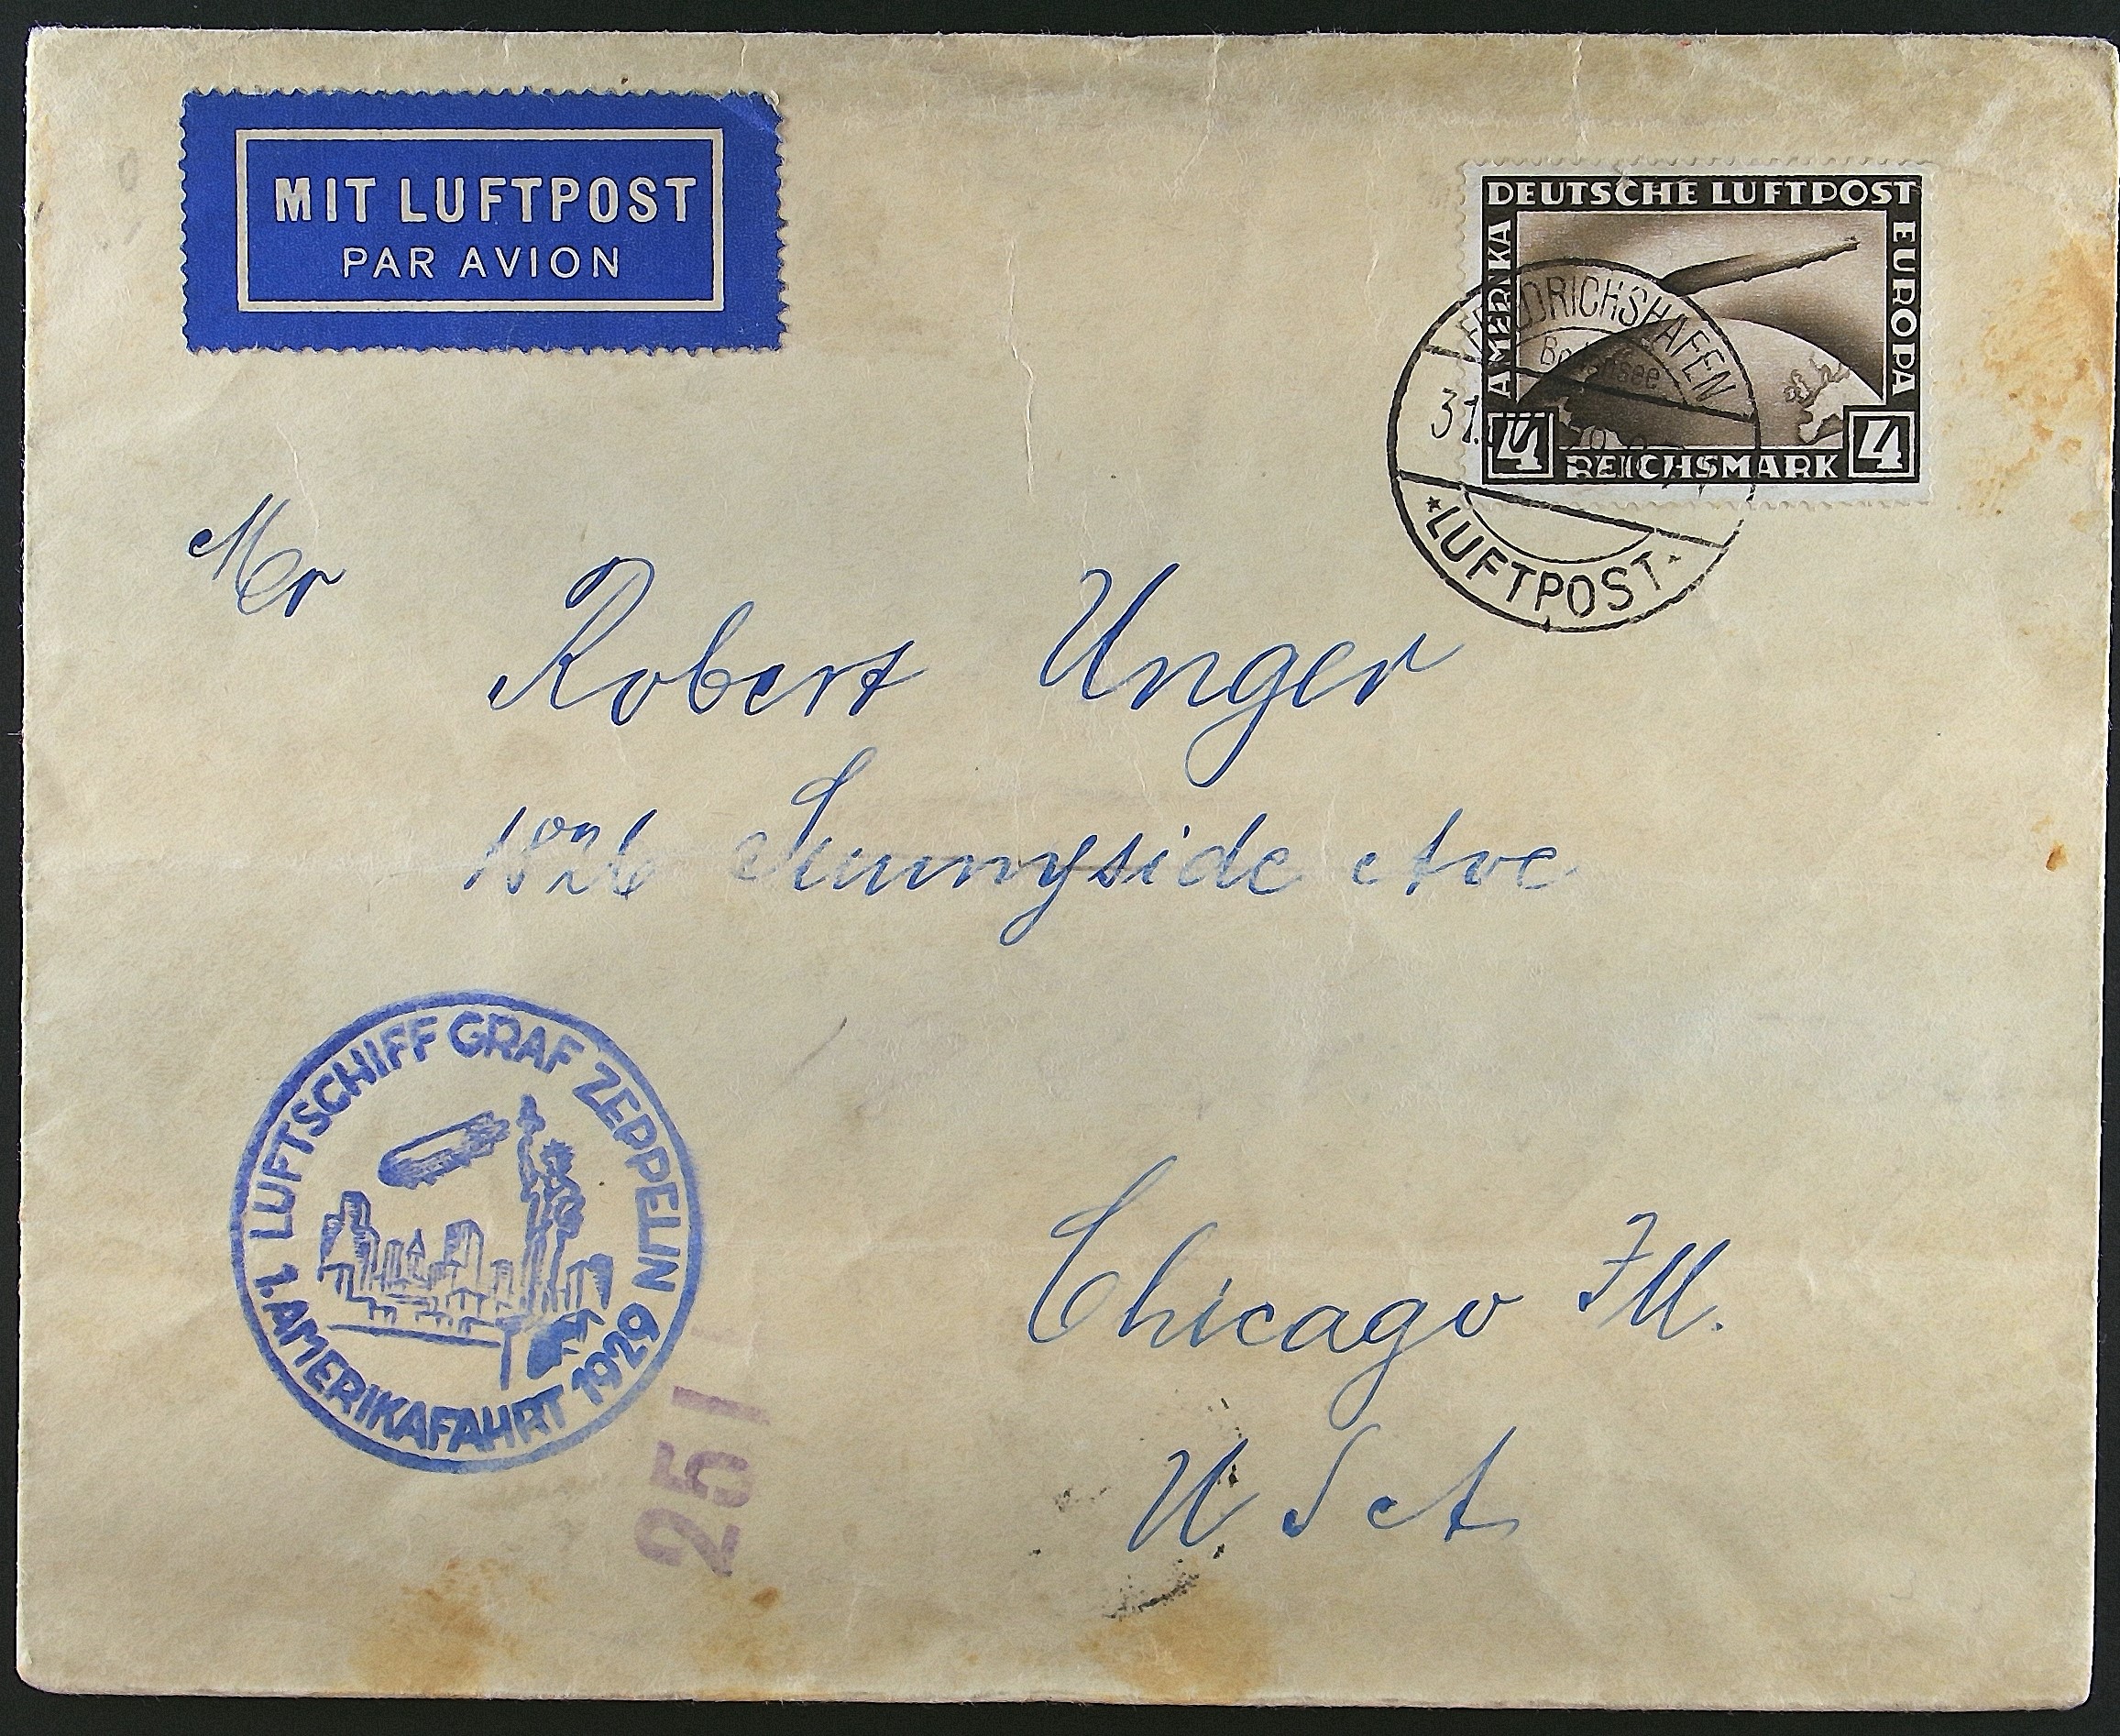 MIT LUFTPOST
PAR AVION
DEUTSCHE LUFTPOST
AMERIKA
EUROPA
4 REICHSMARK 4
FRIEDRICHSHAFEN
Bodensee
31.
*LUFTPOST*
Mr
Robert Unger
1826 Sunnyside Ave
LUFTSCHIFF GRAF ZEPPELIN
1. AMERIKAFAHRT 1929
251
Chicago Ill.
U S A